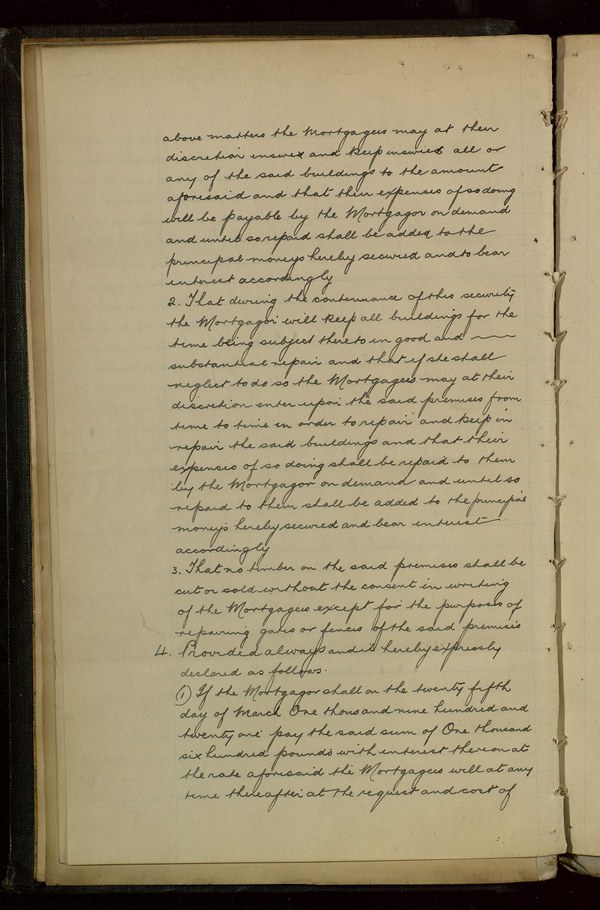 above matters the Mortgagees may at their
discretion insure and keep insured all or
any of the said buildings to the amount
aforesaid and that their expenses of so doing
will be payable by the Mortgagor on demand
and until so repaid shall be added to the
principal moneys hereby secured and to bear
interest accordingly
2. That during the continuance of this security
the Mortgagor will keep all buildings for the
time being subject thereto in good and
substantial repair and that if she shall
neglect to do so the Mortgagees may at their
discretion enter upon the said premises from
time to time in order to repair and keep in
repair the said buildings and that their
expenses of so doing shall be repaid to them
by the Mortgagor on demand and until so
repaid to them shall be added to the principal
moneys hereby secured and bear interest
accordingly
3. That no timber on the said premises shall be
cut or sold without the consent in writing
of the Mortgagees except for the purposes of
repairing gates or fences of the said premises
4. Provided always and it is hereby expressly
declared as follows.
(1) If the Mortgagor shall on the twenty fifth
day of March One thousand nine hundred and
twenty one pay the said sum of One thousand
six hundred pounds with interest thereon at
the rate aforesaid the Mortgagees will at any
time thereafter at the request and cost of